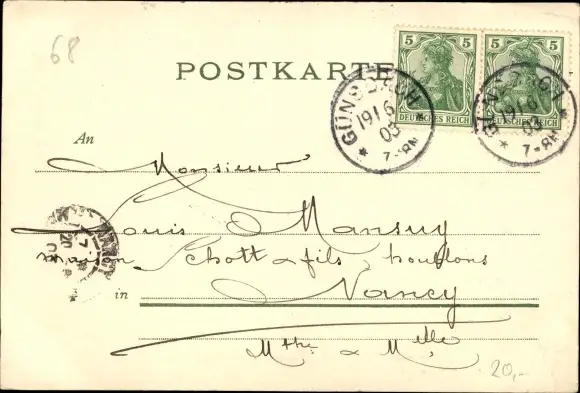 68
POSTKARTE
5 5
DEUTSCHES REICH DEUTSCHES REICH
GÜNSBACH
19/6
03
7-8N
GÜNSBACH
19/6
03
7-8N
An
Monsieur
Louis Mansuy
maison Schott & fils houblons
in Nancy
Mthe & Mlle
20,-